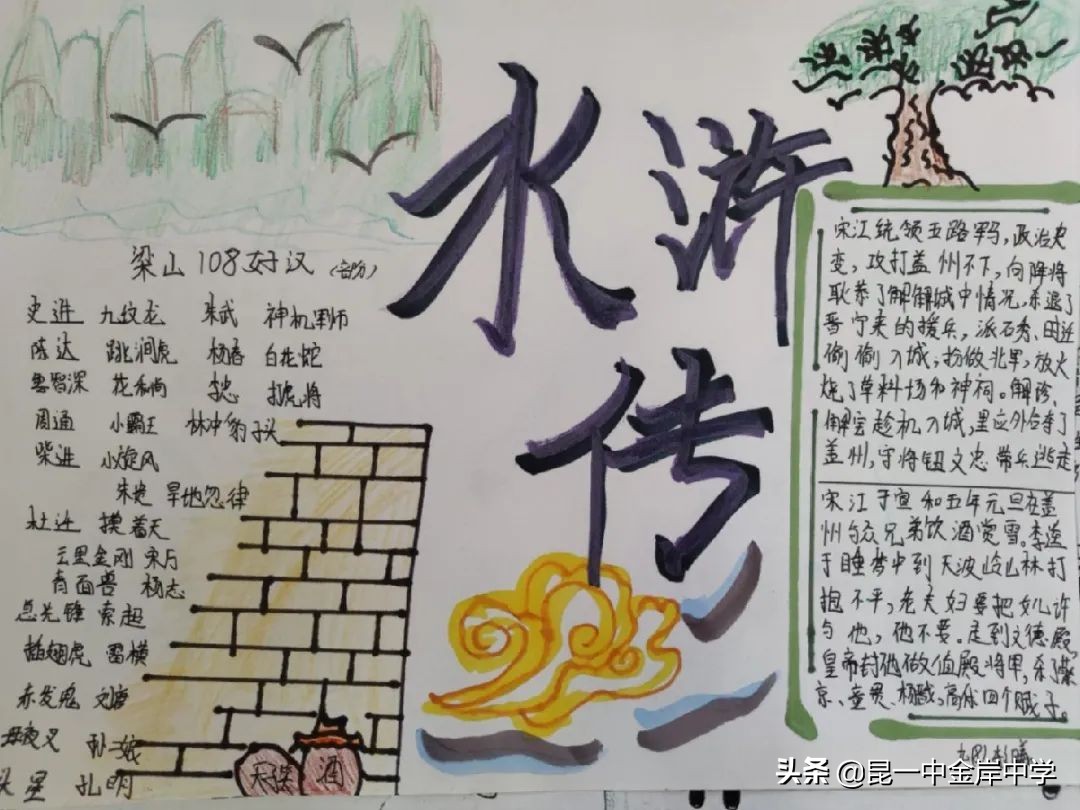 水浒传
梁山108好汉(部分)
史进 九纹龙 朱武 神机军师
陈达 跳涧虎 杨春 白花蛇
鲁智深 花和尚 李忠 打虎将
周通 小霸王 林冲 豹子头
柴进 小旋风
朱贵 旱地忽律
杜迁 摸着天
云里金刚 宋万
青面兽 杨志
急先锋 索超
插翅虎 雷横
赤发鬼 刘唐
母夜义 孙二娘
星 孔明
酒
宋江统领五路军马,政治史
变,攻打盖州不下,向降将
耿恭了解解城中情况,杀退了
晋宁来的援兵,派石秀、时迁
偷偷入城,扮做北军,放火
烧了草料场和神祠。解珍、
解宝趁机入城,里应外合夺了
盖州,守将钮文忠带兵逃走
宋江于宣和五年元旦在盖
州与众兄弟饮酒赏雪。李逵
于睡梦中到天波岭山林打
抱不平,老夫妇要把女儿许
与他,他不要。走到文德殿,
皇帝封他做值殿将军,杀了蔡
京、童贯、杨戬、高俅四个贼子。
头条 @昆一中金岸中学